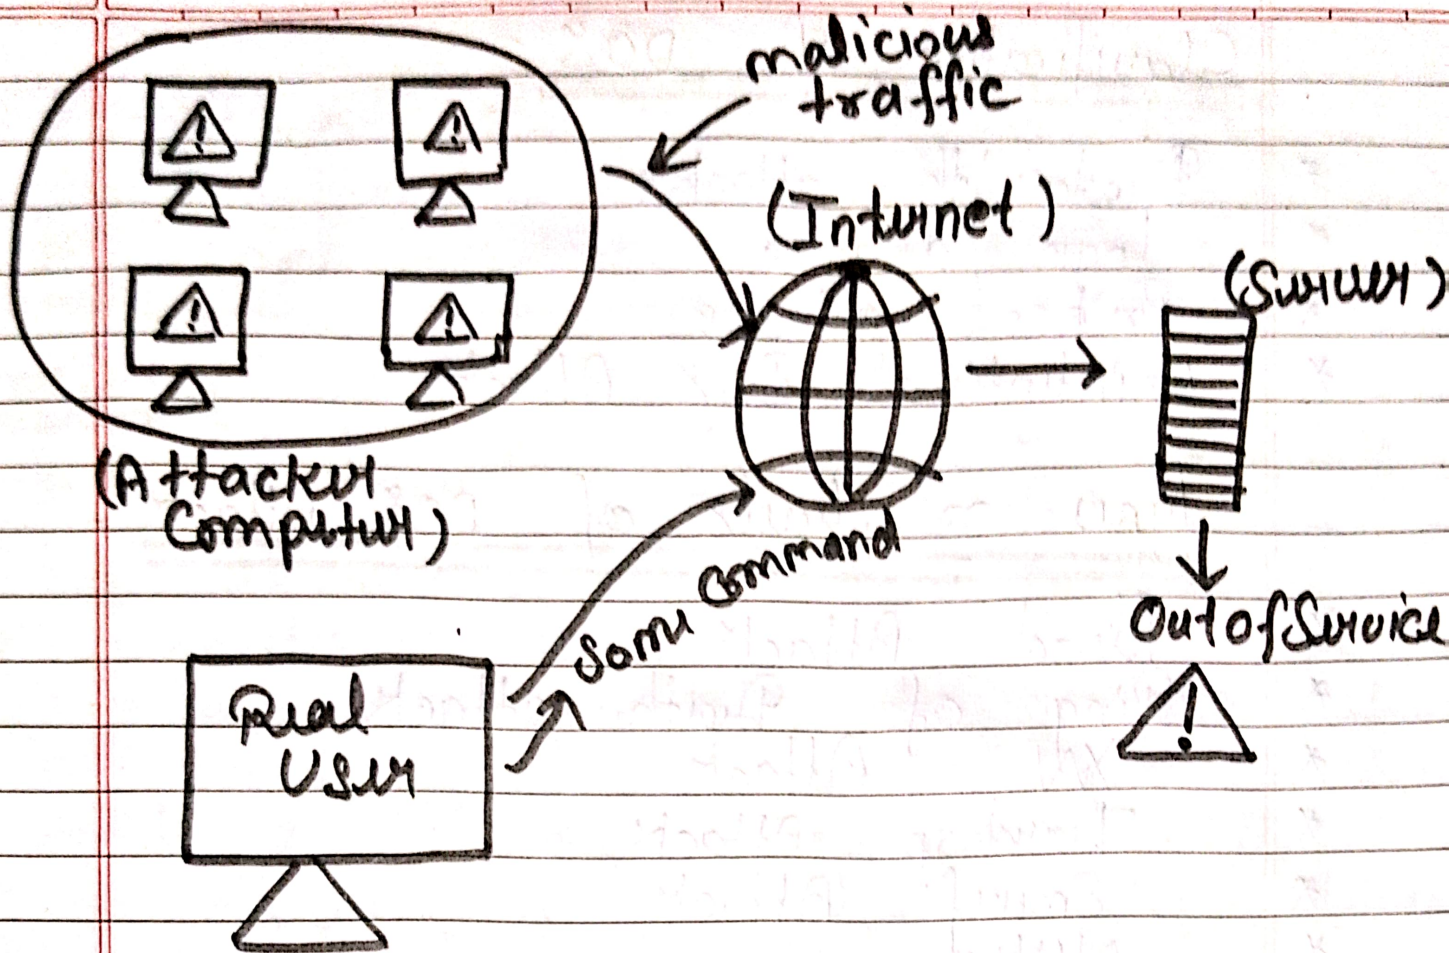 malicious
traffic
(Internet)
(Server)
(Attacker
Computer)
Same Command
Out of Service
Real
User